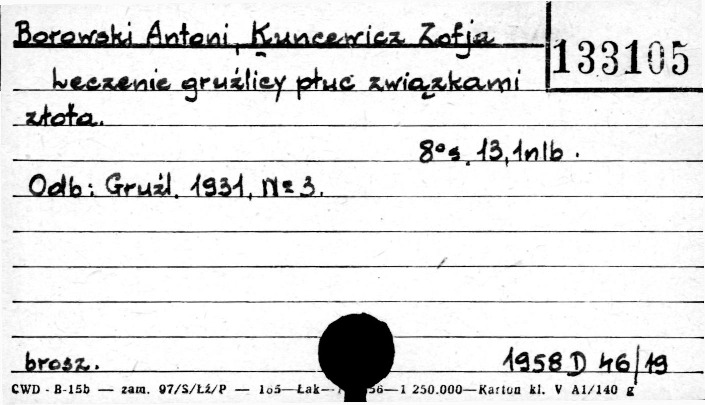 Borowski Antoni, Kuncewicz Zofja
133105
Leczenie gruźlicy płuc związkami
złota.
8°s. 13, 1nlb.
Odb: Gruźl. 1931, № 3.
brosz.
1958 D 46/19
CWD - B-15b — zam. 97/S/Łź/P — 165—Łak— 56—1 250.000—Karton kl. V A1/140 g